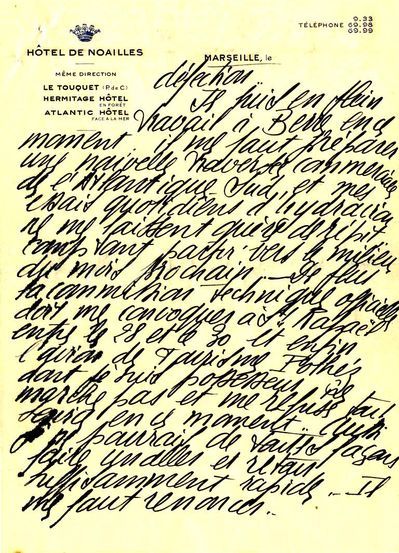 HÔTEL DE NOAILLES
MÊME DIRECTION
LE TOUQUET (P. de C.)
HERMITAGE HÔTEL
EN FORÊT
ATLANTIC HÔTEL
FACE A LA MER
TÉLÉPHONE
9.33
69.98
69.99
MARSEILLE, le
défection..
Je suis en plein
travail à Berre en ce
moment il me faut préparer
une nouvelle traversée commerciale
de l'Atlantique Sud et mes
essais quotidiens d'hydravion
ne me laissent guère de répit
comptant partir vers le milieu
du mois prochain _ De plus
la commission technique officielle
doit me convoquer à St Raphaël
entre le 28 et le 30 et enfin
l'avion de Tourisme Potez
dont je suis possesseur ne
marche pas et me refuse tout
en ce moment..
je pourrais de toutes façons
faire un aller et retour
suffisamment rapide .. Il
me faut renoncer..